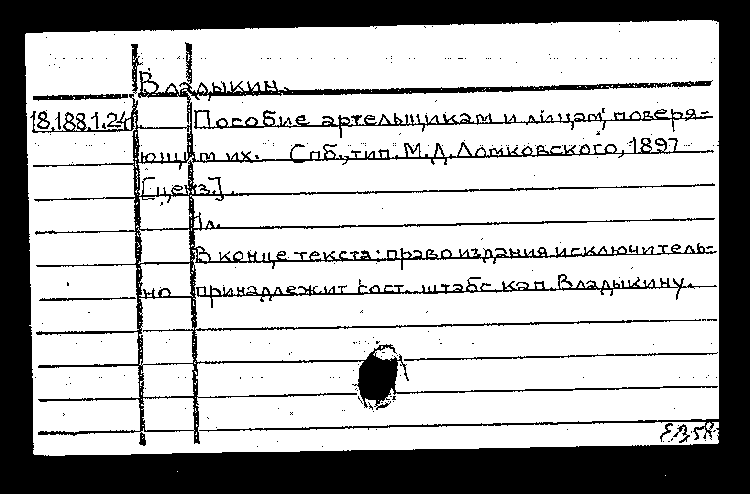 Владыкин.
18.188.1.24
Пособие артельщикам и лицам, поверя-
ющим их. Спб., тип. М.Д. Ломковского, 1897
[ценз.].
1 л.
В конце текста: право издания исключитель-
но принадлежит сост. штабс кап. Владыкину.